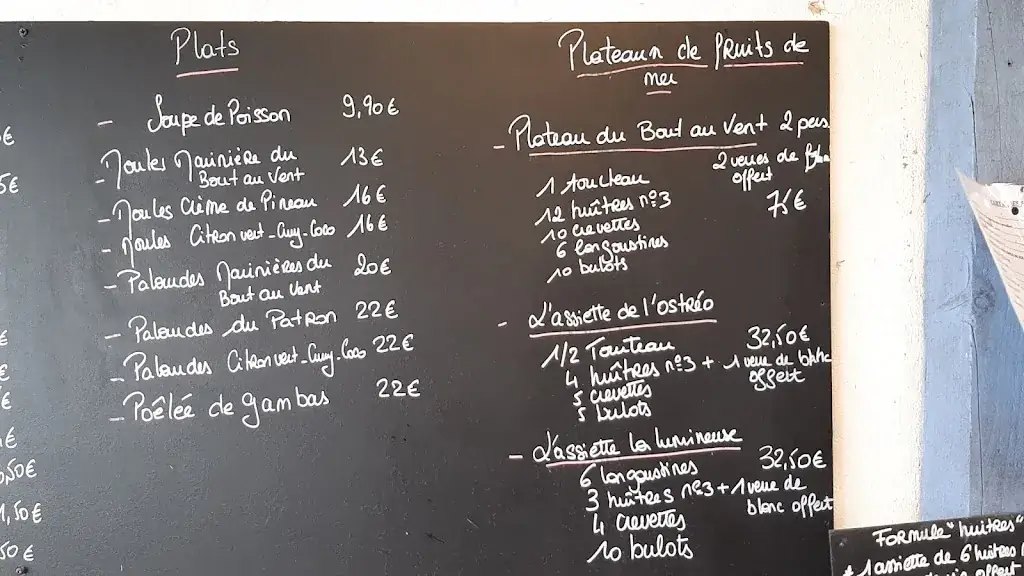 Plats
- Soupe de Poisson 9,90€
- Moules Marinière du 13€
Bout au Vent
- Moules Crème de Pineau 16€
- Moules Citron vert-Curry-Coco 16€
- Palourdes Marinières du 20€
Bout au Vent
- Palourdes du Patron 22€
- Palourdes Citron vert-Curry-Coco 22€
- Poêlée de gambas 22€
5€
€
€
€
€
,50€
1,50€
50€
Plateaux de fruits de
mer
- Plateau du Bout au Vent 2 pers
2 verres de
offert
75€
1 tourteau
12 huîtres n°3
10 crevettes
6 langoustines
10 bulots
- L'assiette de l'ostréo
32,50€
1/2 Tourteau
4 huîtres n°3 + 1 verre de blanc
offert
5 crevettes
5 bulots
- L'assiette la lumineuse
6 langoustines 32,50€
3 huîtres n°3 + 1 verre de
blanc offert
4 crevettes
10 bulots
Formule "huîtres"
* 1 assiette de 6 huîtres
offert